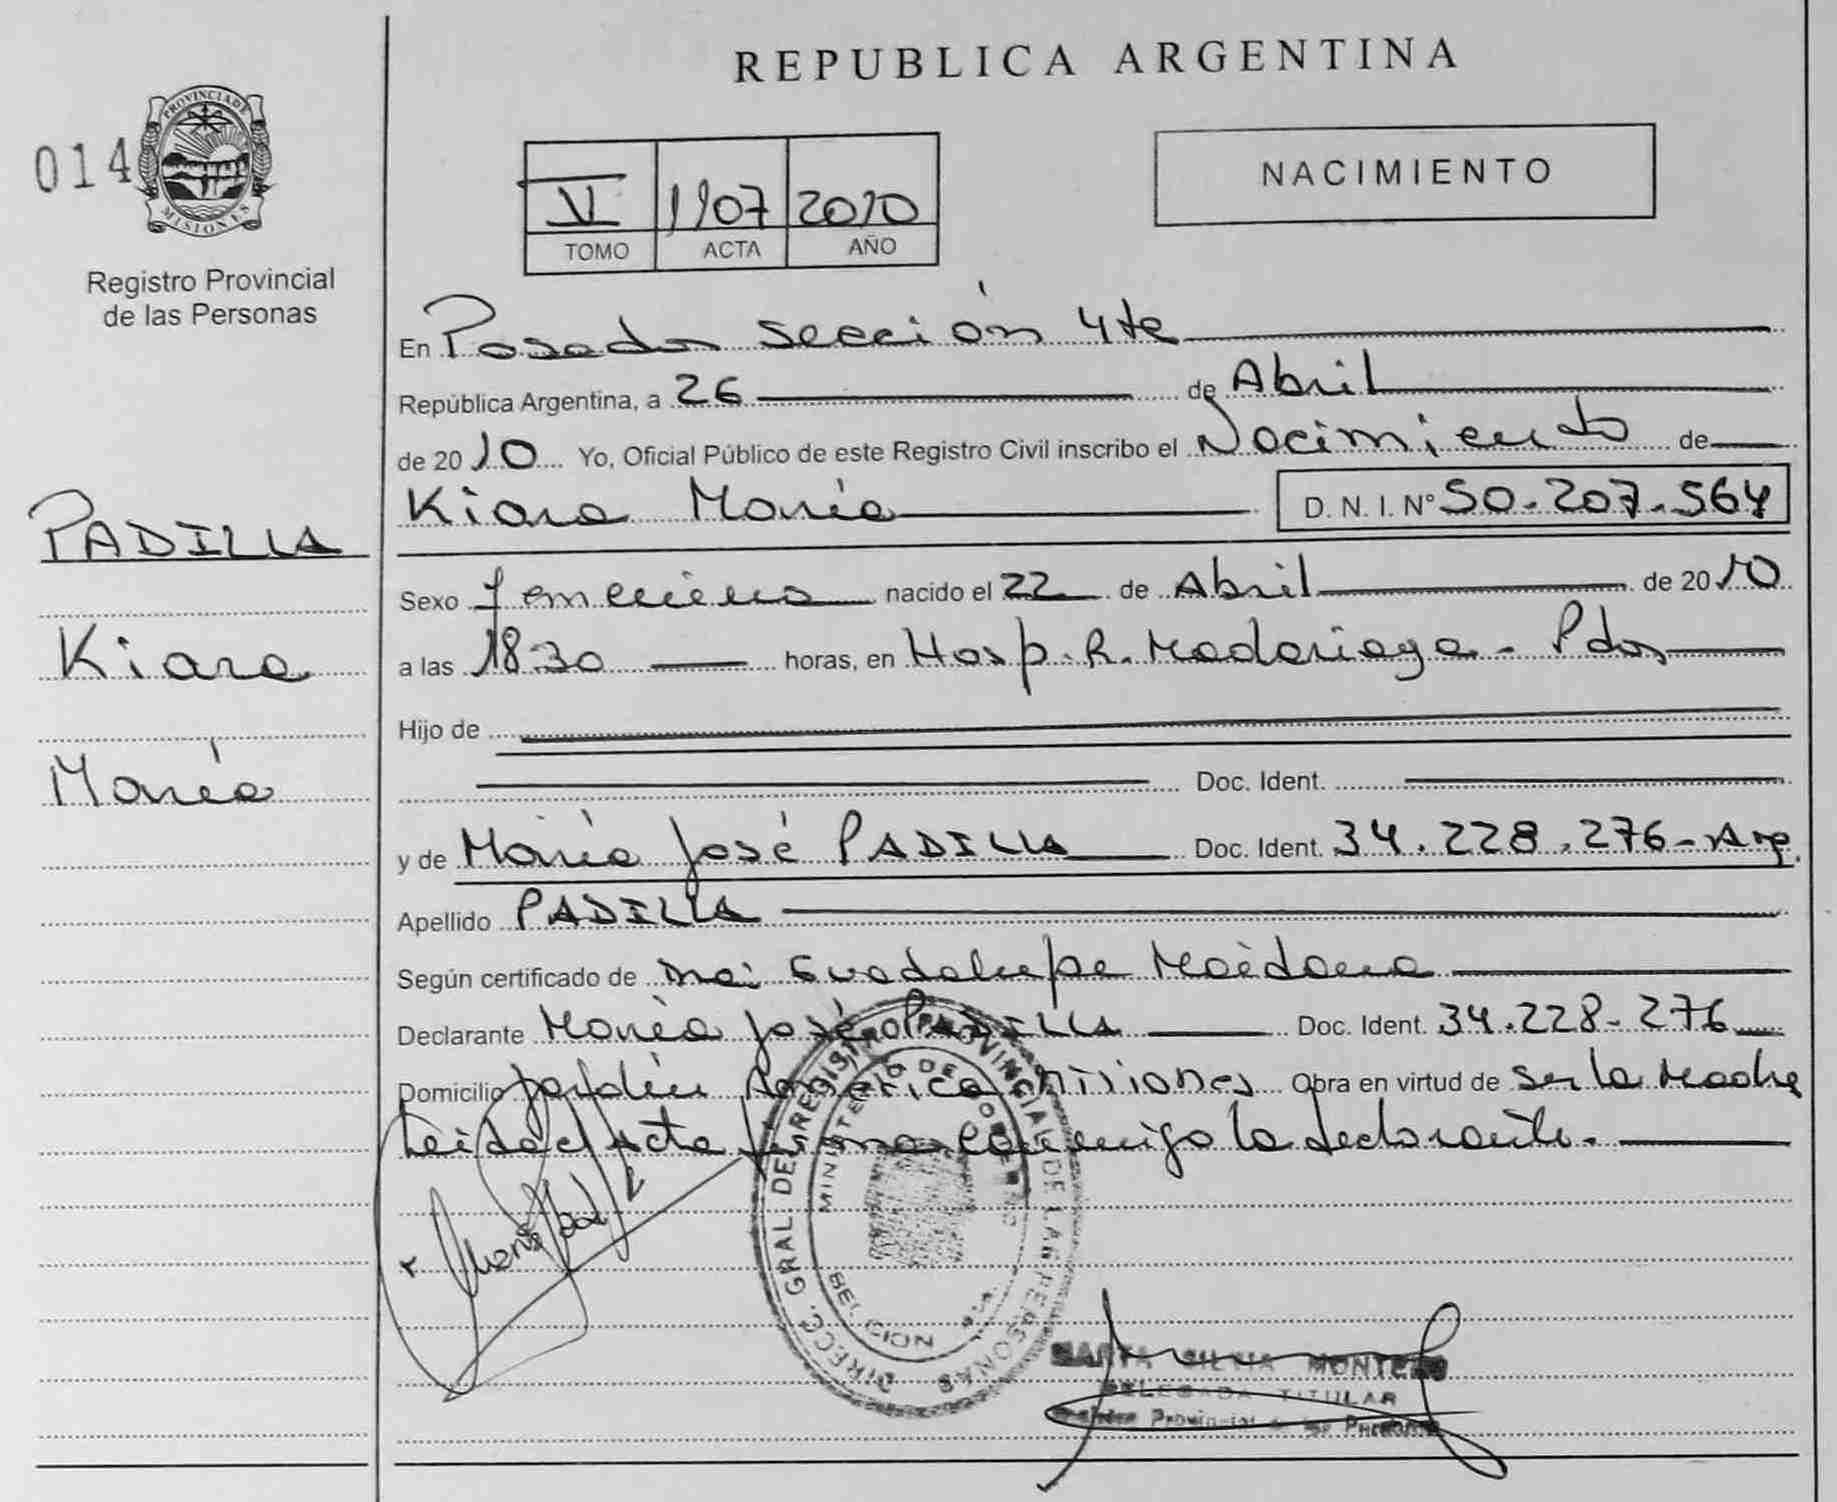 REPUBLICA ARGENTINA
014
PROVINCIA DE
MISIONES
Registro Provincial
de las Personas
NACIMIENTO
VI 1107 2010
TOMO ACTA AÑO
En Posadas sección 4te
República Argentina, a 26 de Abril
de 2010 Yo, Oficial Público de este Registro Civil inscribo el Nacimiento de
Kiara María D. N. I. N° 50.207.564
PADILLA
Kiara
María
Sexo femenino nacido el 22 de Abril de 2010
a las 18:30 horas, en Hosp. R. Madariaga - Pdas
Hijo de
Doc. Ident.
y de María José PADILLA Doc. Ident. 34.228.276 - Arg.
Apellido PADILLA
Según certificado de Guadalupe Maidana
Declarante María José PADILLA Doc. Ident. 34.228.276
Domicilio Jardín América Misiones Obra en virtud de ser la Madre
Leida el Acta firma conmigo la declarante.
DIRECC. GRAL DEL REGISTRO PROVINCIAL DE LAS PERSONAS
MINISTERIO DE GOBIERNO
MARTA SILVIA MONTERO
DELEGADA TITULAR
Registro Provincial de las Personas